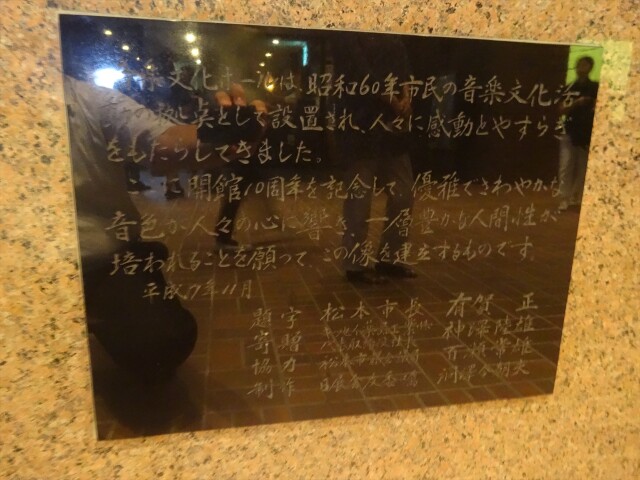 音楽文化ホールは、昭和60年市民の音楽文化活
動の拠点として設置され、人々に感動とやすらぎ
をもたらしてきました。
ここに開館10周年を記念して、優雅でさわやかな
音色が人々の心に響き、一層豊かな人間性が
培われることを願って、この像を建立するものです。
平成7年11月
題字 松本市長 有賀 正
寄贈 神澤陸雄
協力 松本市議会議員
制作 日展会友